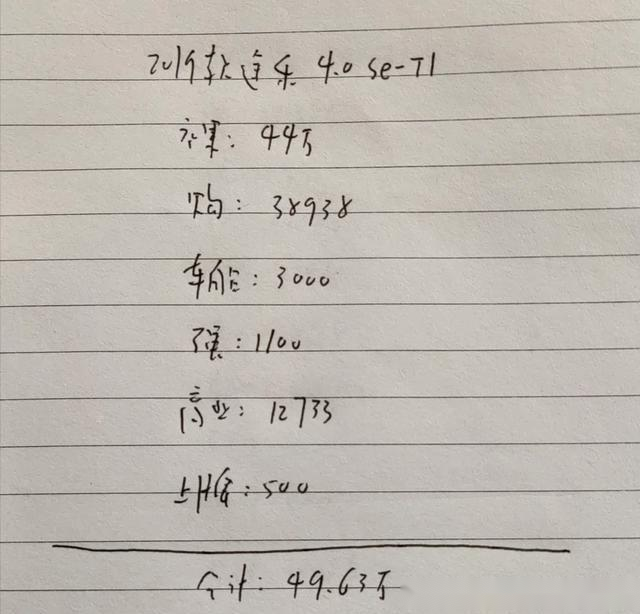 2019款途乐 4.0 Se-T1
裸车: 44万
购: 38938
车船: 3000
强: 1100
商业: 12733
上牌: 500
合计: 49.63万